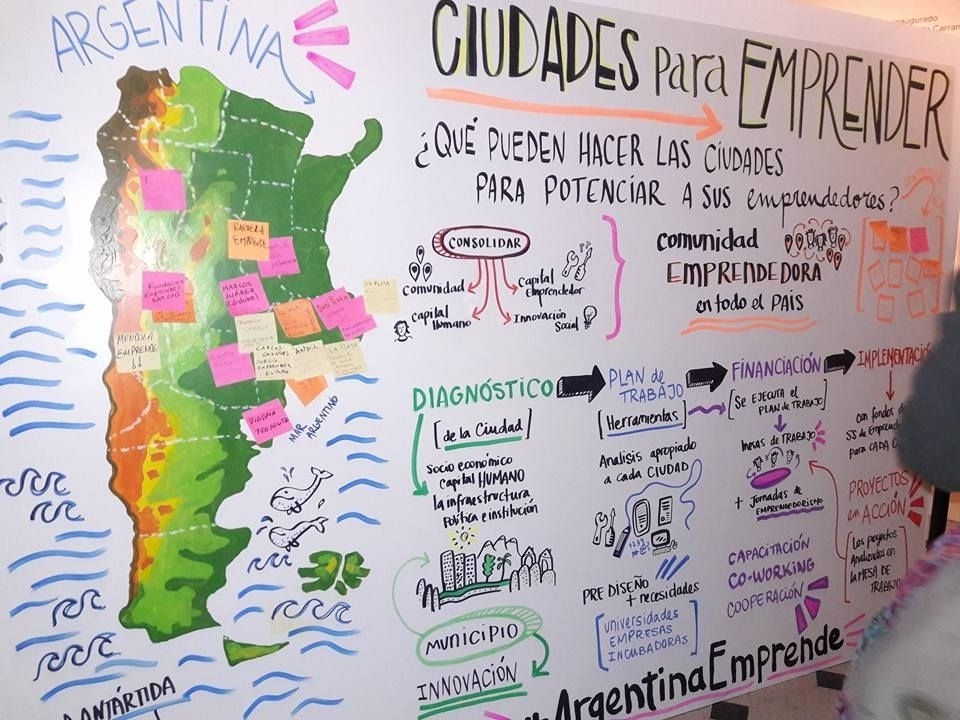 ARGENTINA
CIUDADES para EMPRENDER
¿QUÉ PUEDEN HACER LAS CIUDADES
PARA POTENCIAR A SUS emprendedores?
CONSOLIDAR
Comunidad
Capital
Humano
Capital
Emprendedor
Innovación
Social
comunidad
EMPRENDEDORA
en todo el PAÍS
DIAGNÓSTICO
[de la Ciudad]
Socio económico
capital HUMANO
la infraestructura
Política e institución
MUNICIPIO
INNOVACIÓN
PLAN de
TRABAJO
[Herramientas]
Analisis apropiado
a cada CIUDAD
PRE DISEÑO
+ necesidades
universidades
EMPRESAS
INCUBADORAS
FINANCIACIÓN
[Se EJECUTA el
PLAN de TRABAJO]
mesas de TRABAJO
+ Jornadas de
EMPRENDEDORISMO
CAPACITACIÓN
CO-WORKING
COOPERACIÓN
IMPLEMENTACIÓ
con fondos d
SS de Emprend
para CADA
PROYECTOS
en ACCIÓN
Los proyectos
Analizados en
la MESA DE
TRABAJO
#ArgentinaEmprende
RAFAELA
EMPRENDE
Fundación
MARCOS
JUÁREZ
(Córdoba)
LA PLATA
MENDOZA
EMPRENDE
MAR
ARGENTINO
ANTÁRTIDA